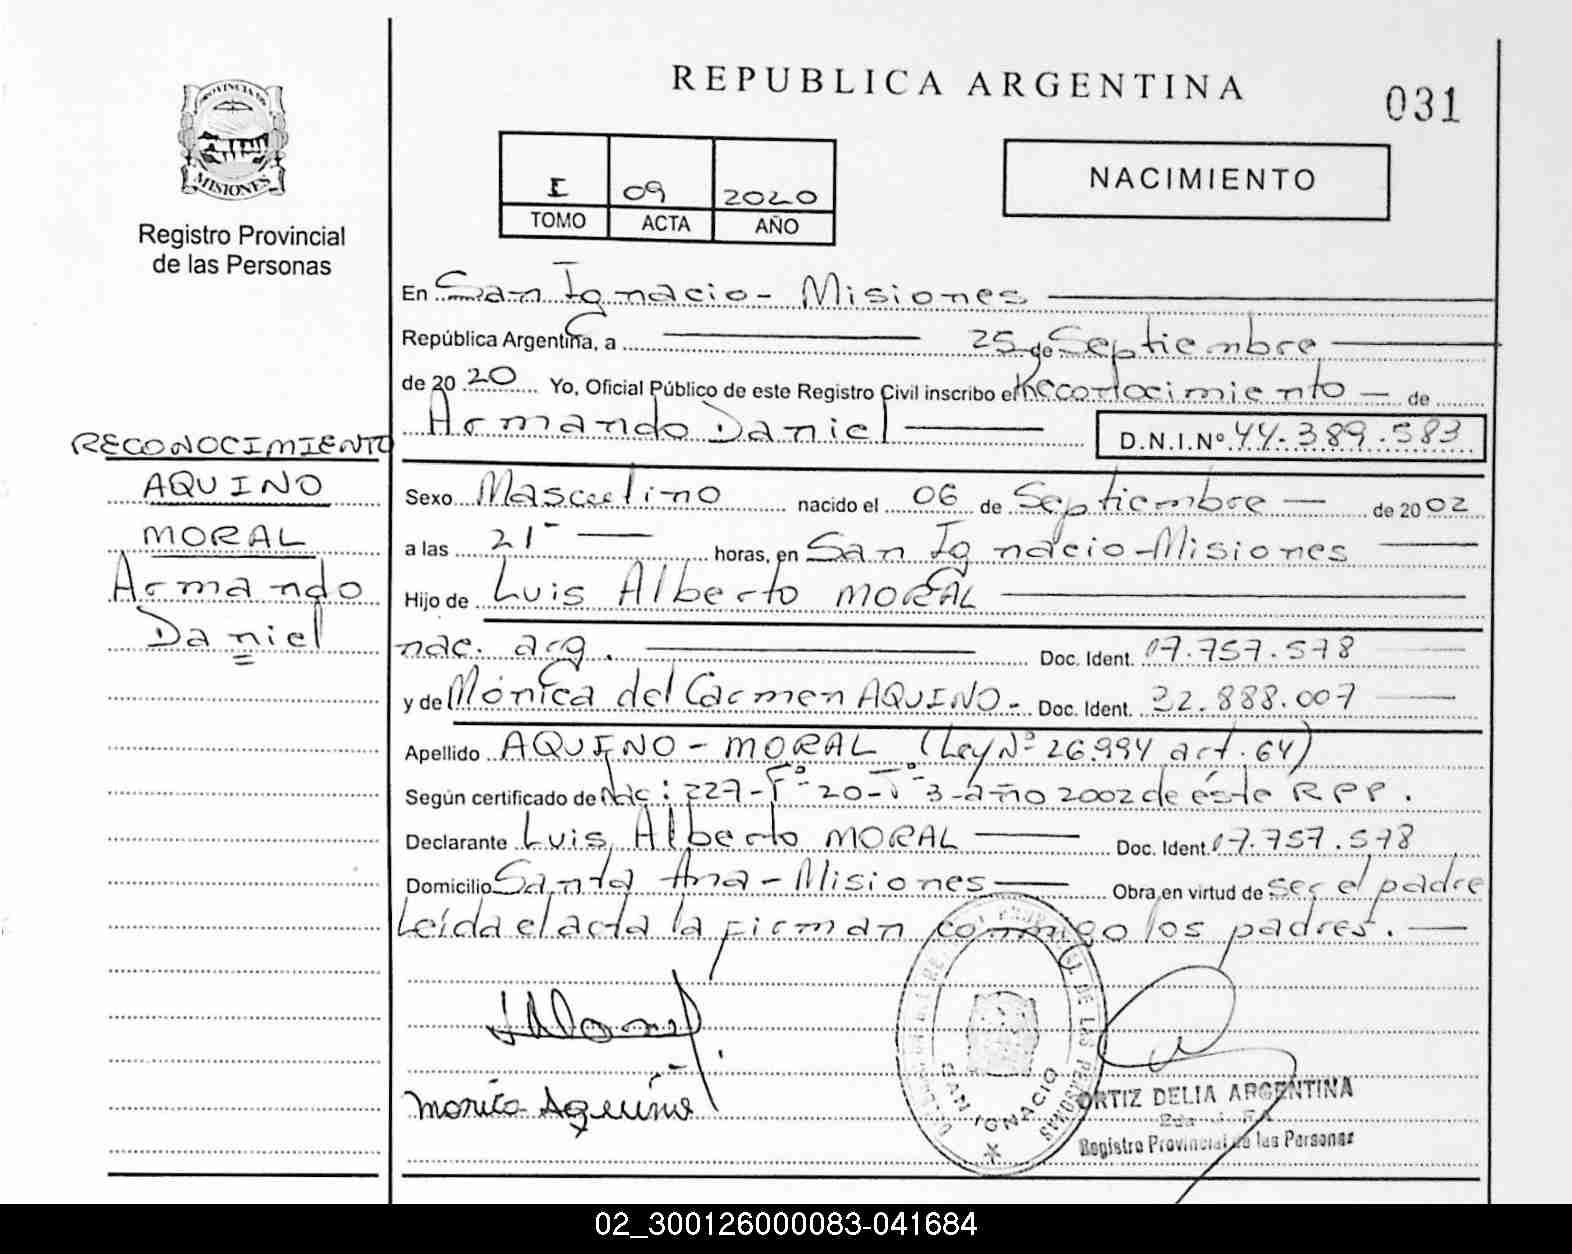 REPUBLICA ARGENTINA
031
PROVINCIA DE
MISIONES
Registro Provincial
de las Personas
I 09 2020
TOMO ACTA AÑO
NACIMIENTO
En San Ignacio - Misiones
República Argentina, a 25 de Septiembre
de 20 20 Yo, Oficial Público de este Registro Civil inscribo el Reconocimiento - de
Armando Daniel D.N.I.Nº 44.389.583
RECONOCIMIENTO
AQUINO
MORAL
Armando
Daniel
Sexo Masculino nacido el 06 de Septiembre - de 20 02
a las 21 - horas, en San Ignacio - Misiones
Hijo de Luis Alberto MORAL
nac. arg. Doc. Ident. 17.757.578
y de Mónica del Carmen AQUINO - Doc. Ident. 32.888.007
Apellido AQUINO - MORAL (Ley Nº 26.994 art. 64)
Según certificado de Nac: 227 - Fº 20 - Tº 3 - año 2002 de éste R P P.
Declarante Luis Alberto MORAL Doc. Ident. 17.757.578
Domicilio Santa Ana - Misiones Obra en virtud de ser el padre
Leída el acta la firman conmigo los padres.
Monica Aquino
SAN IGNACIO
ORTIZ DELIA ARGENTINA
Registro Provincial de las Personas
02_300126000083-041684